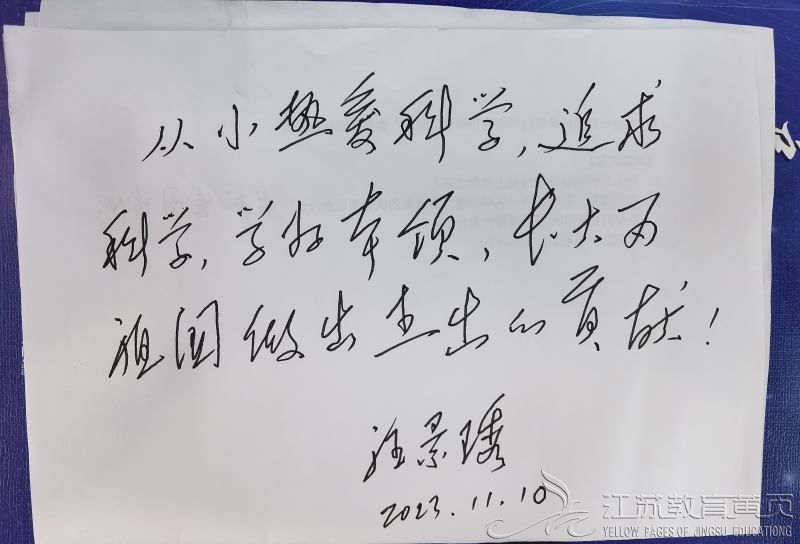 从小热爱科学,追求
科学,学好本领,长大为
祖国做出杰出的贡献!
汪景琇
2023.11.10
江苏教育黄页
YELLOW PAGES OF JINGSU EDUCATIONG